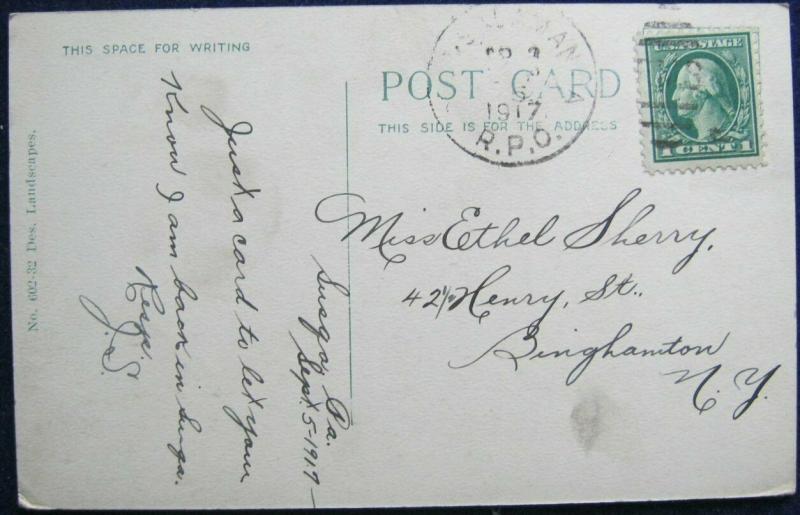 THIS SPACE FOR WRITING
POST CARD
THIS SIDE IS FOR THE ADDRESS
1917
R.P.O.
U.S. POSTAGE
1 CENT 1
Susqa, Pa.
Sept. 5-1917
Just a card to let your
Know I am back in Susqa.
Resp.
J.S.
Miss Ethel Sherry,
42½ Henry, St.,
Binghamton
N.Y.
No. 602-32 Des. Landscapes.